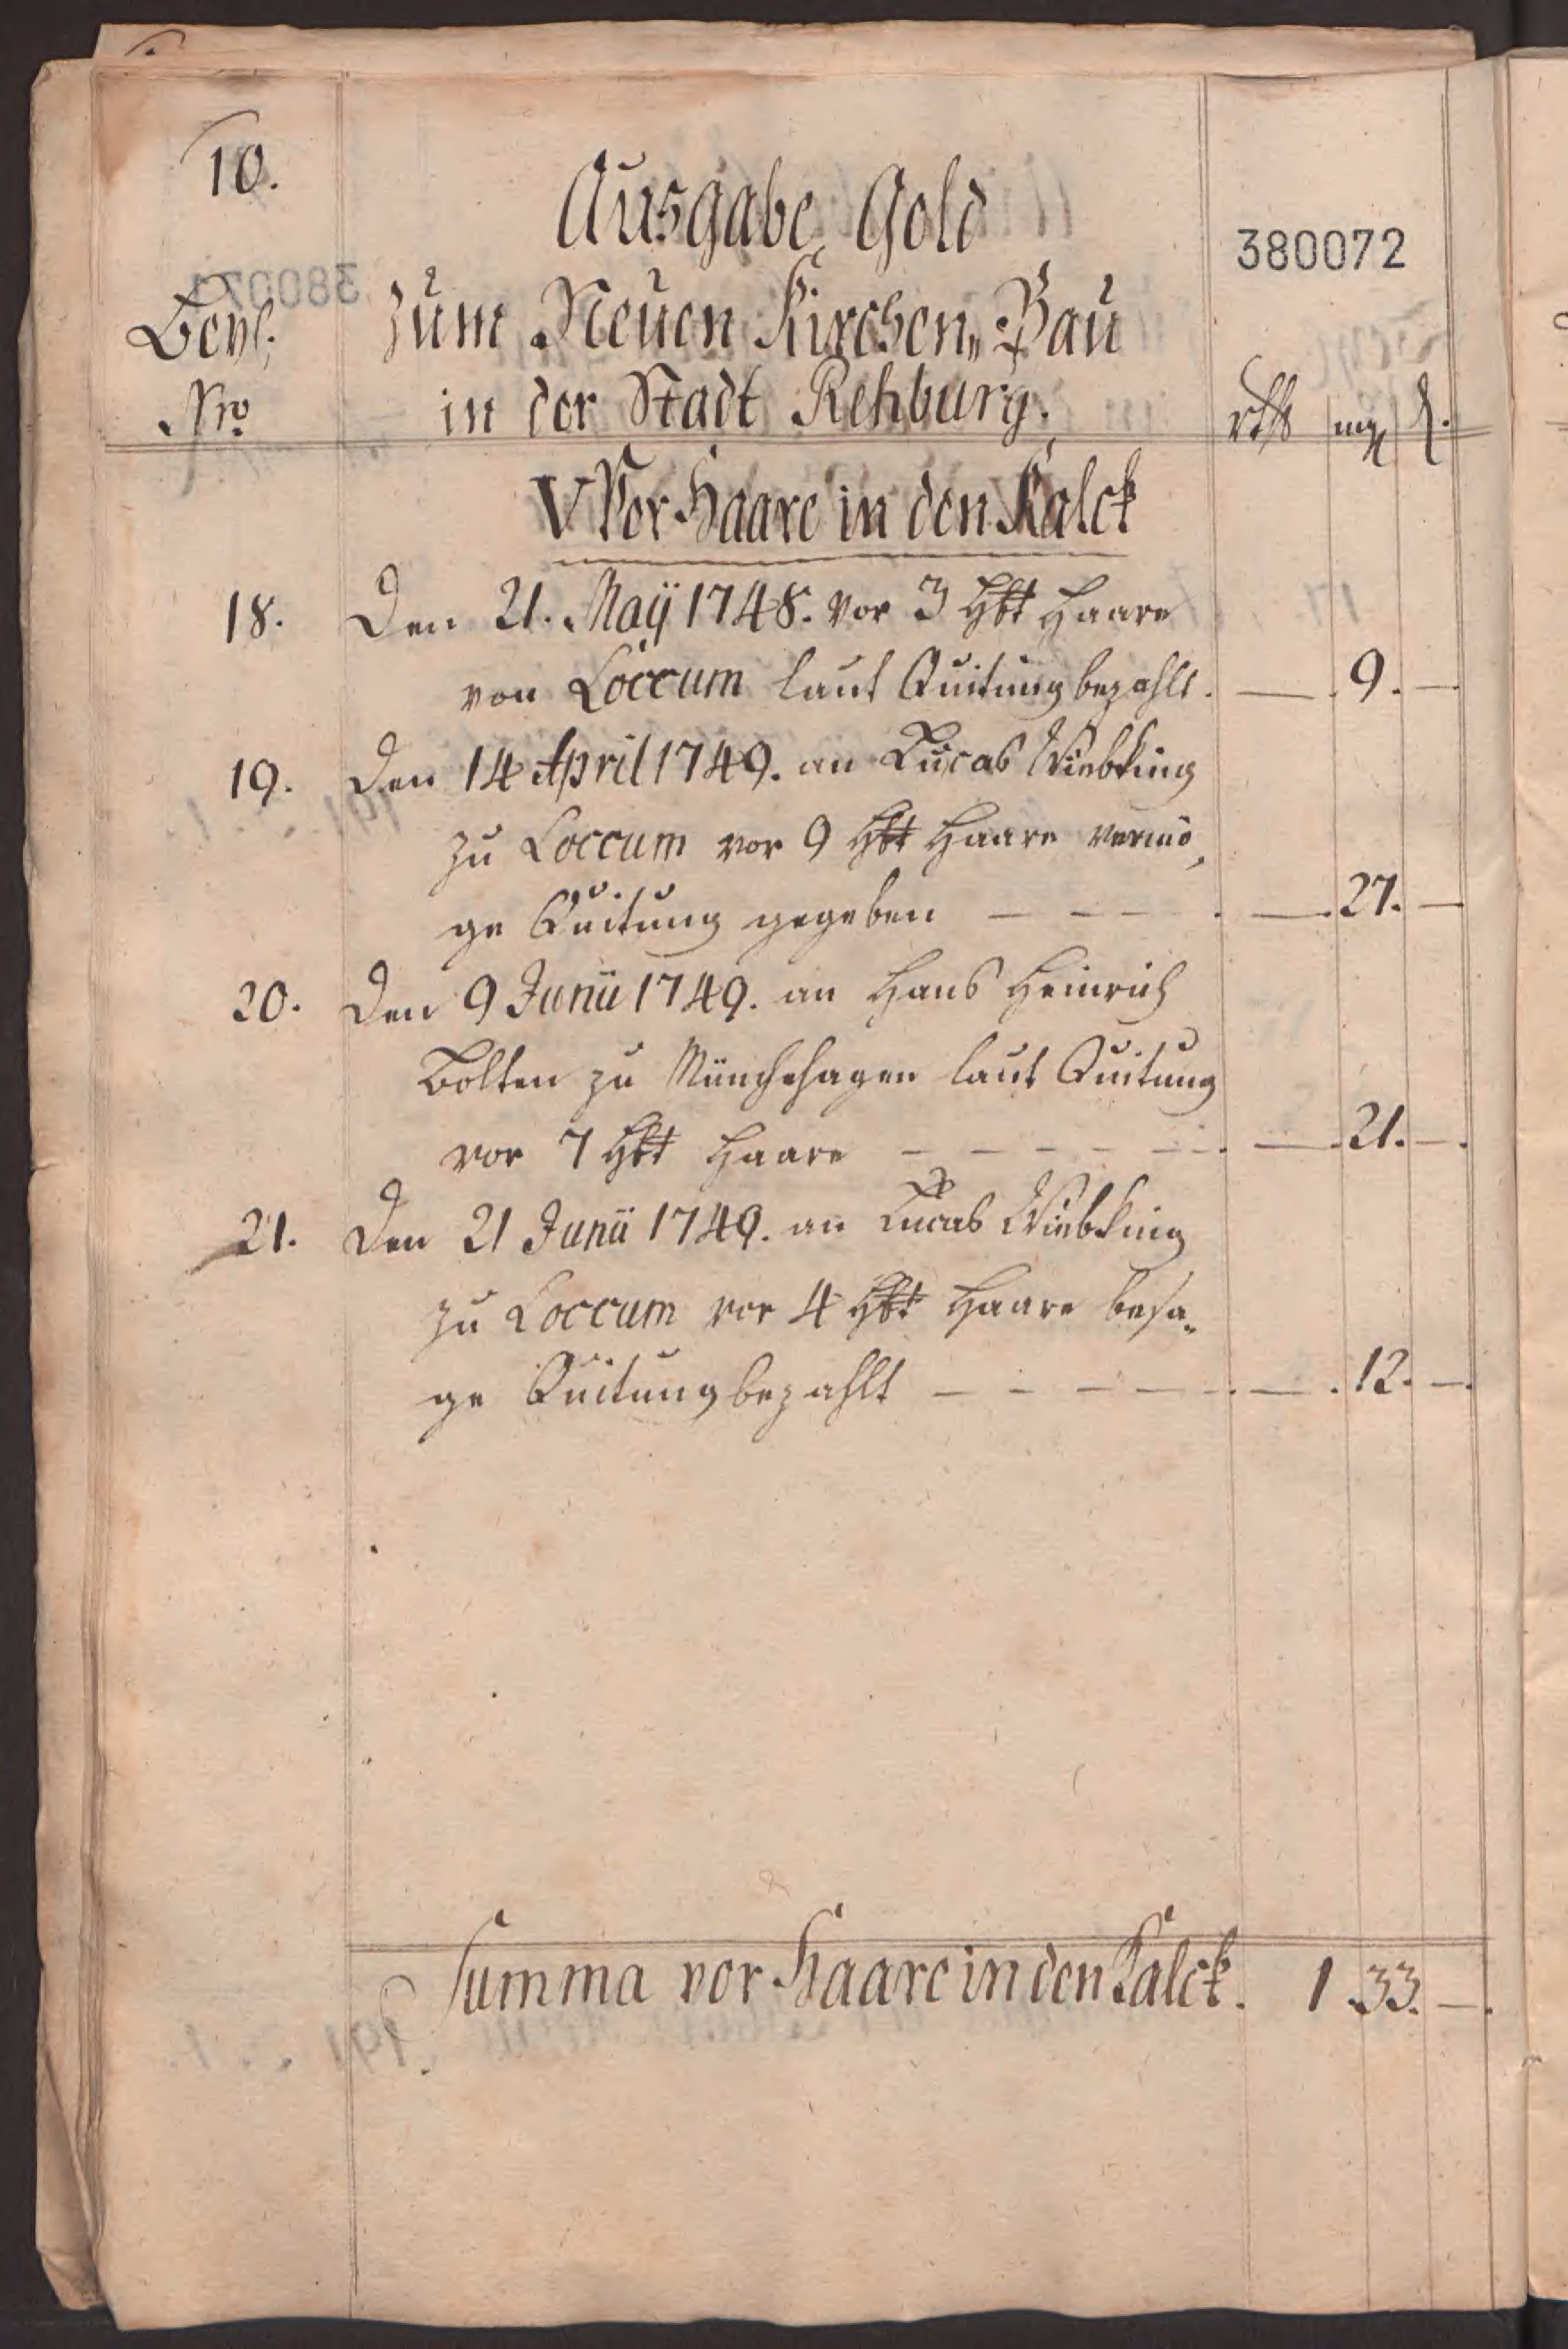 10.
Ausgabe Geld
380072
Beyl. zum Neuen Kirchen„Bau
Nro in der Stadt Rehburg. rthl mg d.
V Vor Haare in den Kalck
18. Den 21. Maÿ 1748. vor 3 Hbt Haare
von Loccum laut Quitung bezahlt. — 9. —
19. Den 14 April 1749. an Lucas Wiebking
zu Loccum vor 9 Hbt Haare vermö„
ge Quitung gegeben — — — — 27. —
20. Den 9 Junii 1749. an Hans Heinrich
Bolten zu Münchehagen laut Quitung
vor 7 Hbt Haare — — — — — — 21. —
21. Den 21 Junii 1749. an Lucas Wiebking
zu Loccum vor 4 Hbt Haare besa„
ge Quitung bezahlt — — — — — 12. —
Summa vor Haare in den Kalck. 1 33. —